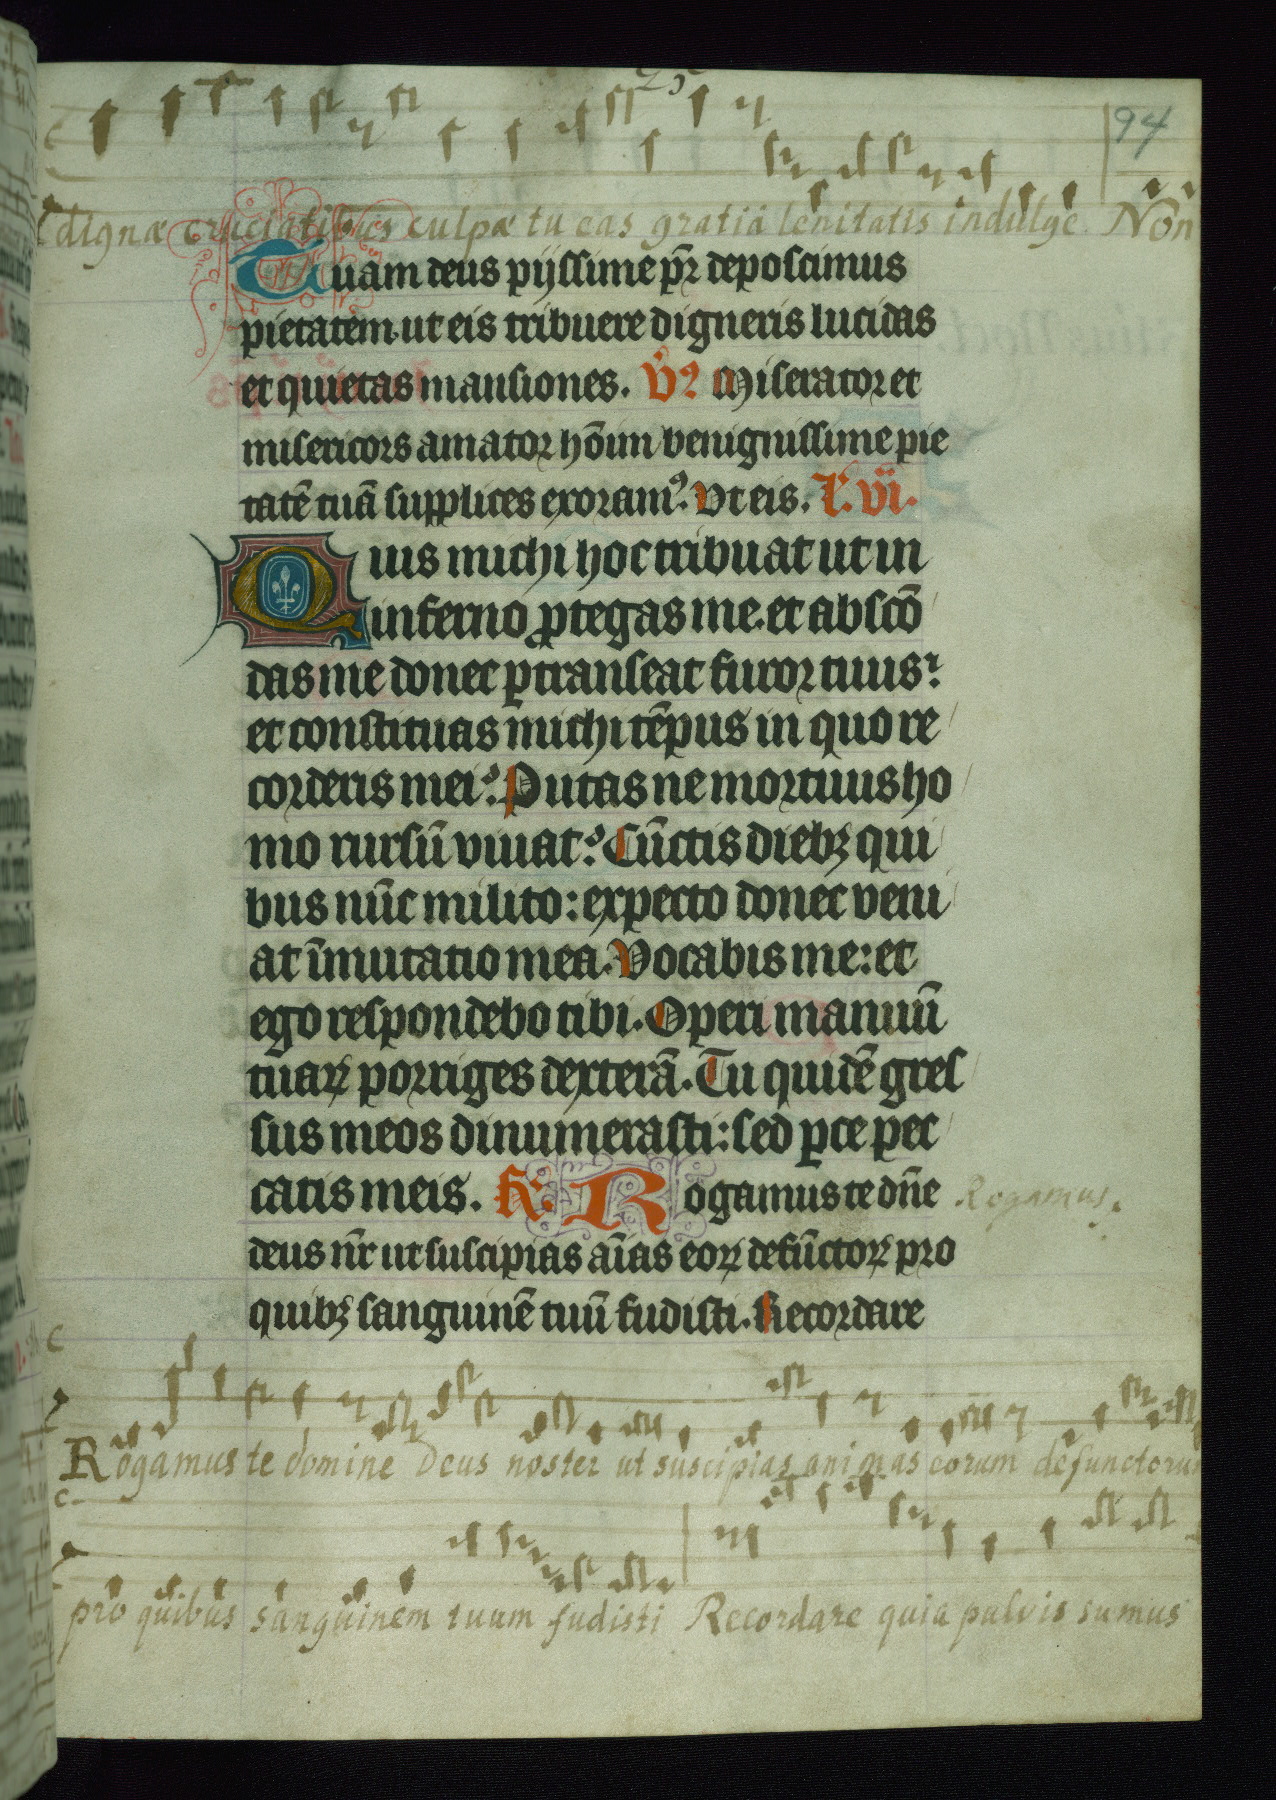 25
94
dignæ cruciatibus culpæ tu eas gratia lenitatis indulge. Non
Tuam deus pijssime pr̄ deposcimus
pietatem ut eis tribuere digneris lucidas
et quietas mansiones. Miserator et
misericors amator hōim benignissime pie
tatē tuā supplices exoramꝰ. Ut eis. L. vi.
Quis michi hoc tribuat ut in
inferno ꝓtegas me. et abscō
das me donec ꝑtranseat furor tuus:
et constituas michi tēpus in quo re
corderis mei? Putas ne mortuus ho
mo rursū vivat? Cūctis diebꝫ qui
bus nūc milito: expecto donec veni
at īmutatio mea. Vocabis me: et
ego respondebo tibi. Operi manuū
tuaꝝ porriges dexterā. Tu quidē gres
sus meos dinumerasti: sed ꝑce pec
catis meis. R. Rogamus te dn̄e Rogamus.
deus nr̄ ut suscipias aīas eoꝝ defūctoꝝ pro
quibꝫ sanguinē tuū fudisti. Recordare
Rogamus te domine Deus noster ut suscipias animas eorum defunctorum
pro quibus sanguinem tuum fudisti Recordare quia pulvis sumus